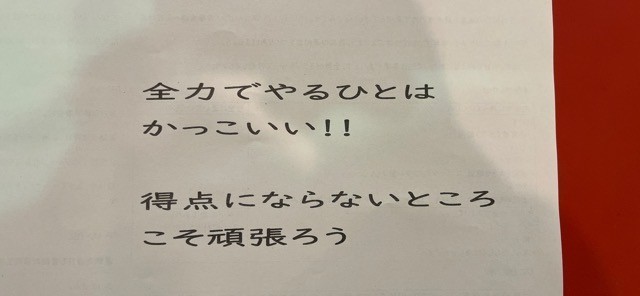 全力でやるひとは
かっこいい!!
得点にならないところ
こそ頑張ろう